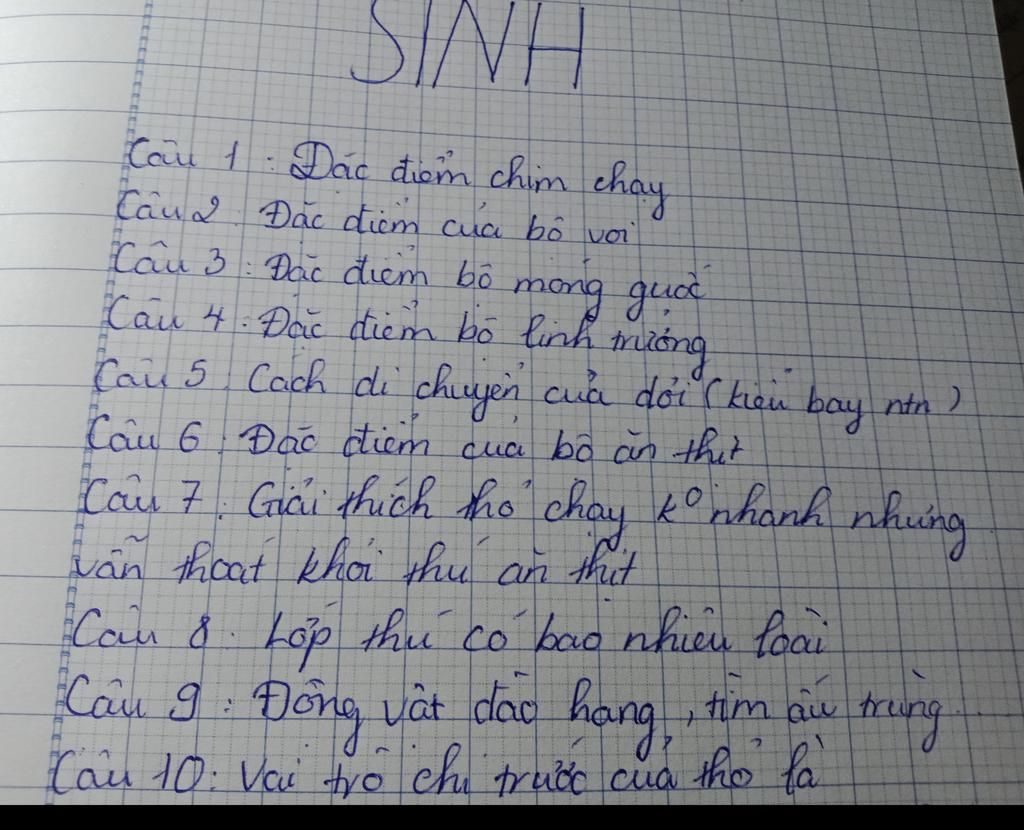 SINH
Câu 1: Đặc điểm chim chạy
Câu 2: Đặc điểm của bộ voi
Câu 3: Đặc điểm bộ móng guốc
Câu 4: Đặc điểm bộ linh trưởng
Câu 5: Cách di chuyển của dơi (kiểu bay ntn)
Câu 6: Đặc điểm của bộ ăn thịt
Câu 7: Giải thích thỏ chạy k° nhanh nhưng
vẫn thoát khỏi thú ăn thịt
Câu 8: Lớp thú có bao nhiêu loài
Câu 9: Động vật đào hang, tìm ấu trùng
Câu 10: Vai trò chi trước của thỏ là